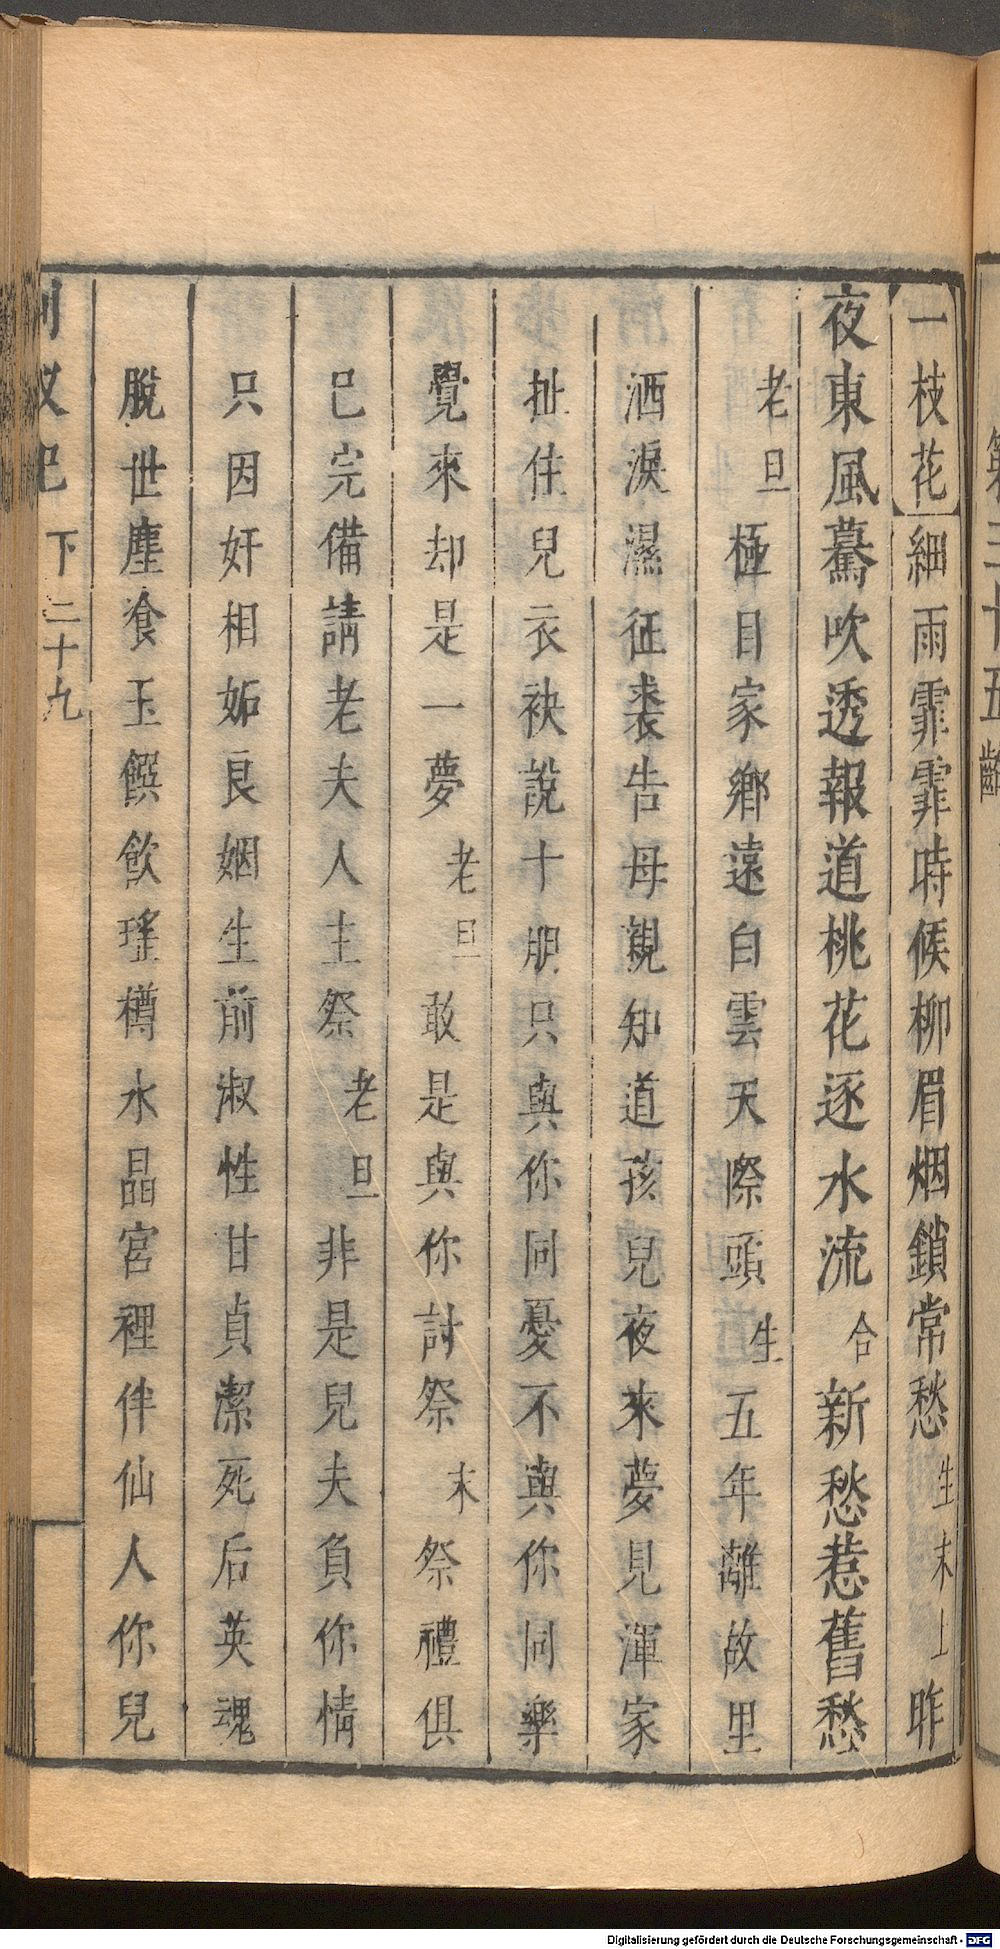 一枝花細雨霏霏時候柳眉烟鎖常愁生末上昨
夜東風驀吹透報道桃花逐水流合新愁惹舊愁
老旦極目家鄉遠白雲天際頭生五年離故里
洒淚濕征裘告母親知道孩兒夜來夢見渾家
扯住兒衣袂說十朋只與你同憂不與你同樂
覺來却是一夢老旦敢是與你討祭末祭禮俱
已完備請老夫人主祭老旦非是兒夫負你情
只因奸相妬良姻生前淑性甘貞潔死后英魂
脫世塵飡玉饌飲瑤樽水晶宮裡伴仙人你兒
下 二十九
Digitalisierung gefördert durch die Deutsche Forschungsgemeinschaft - DFG